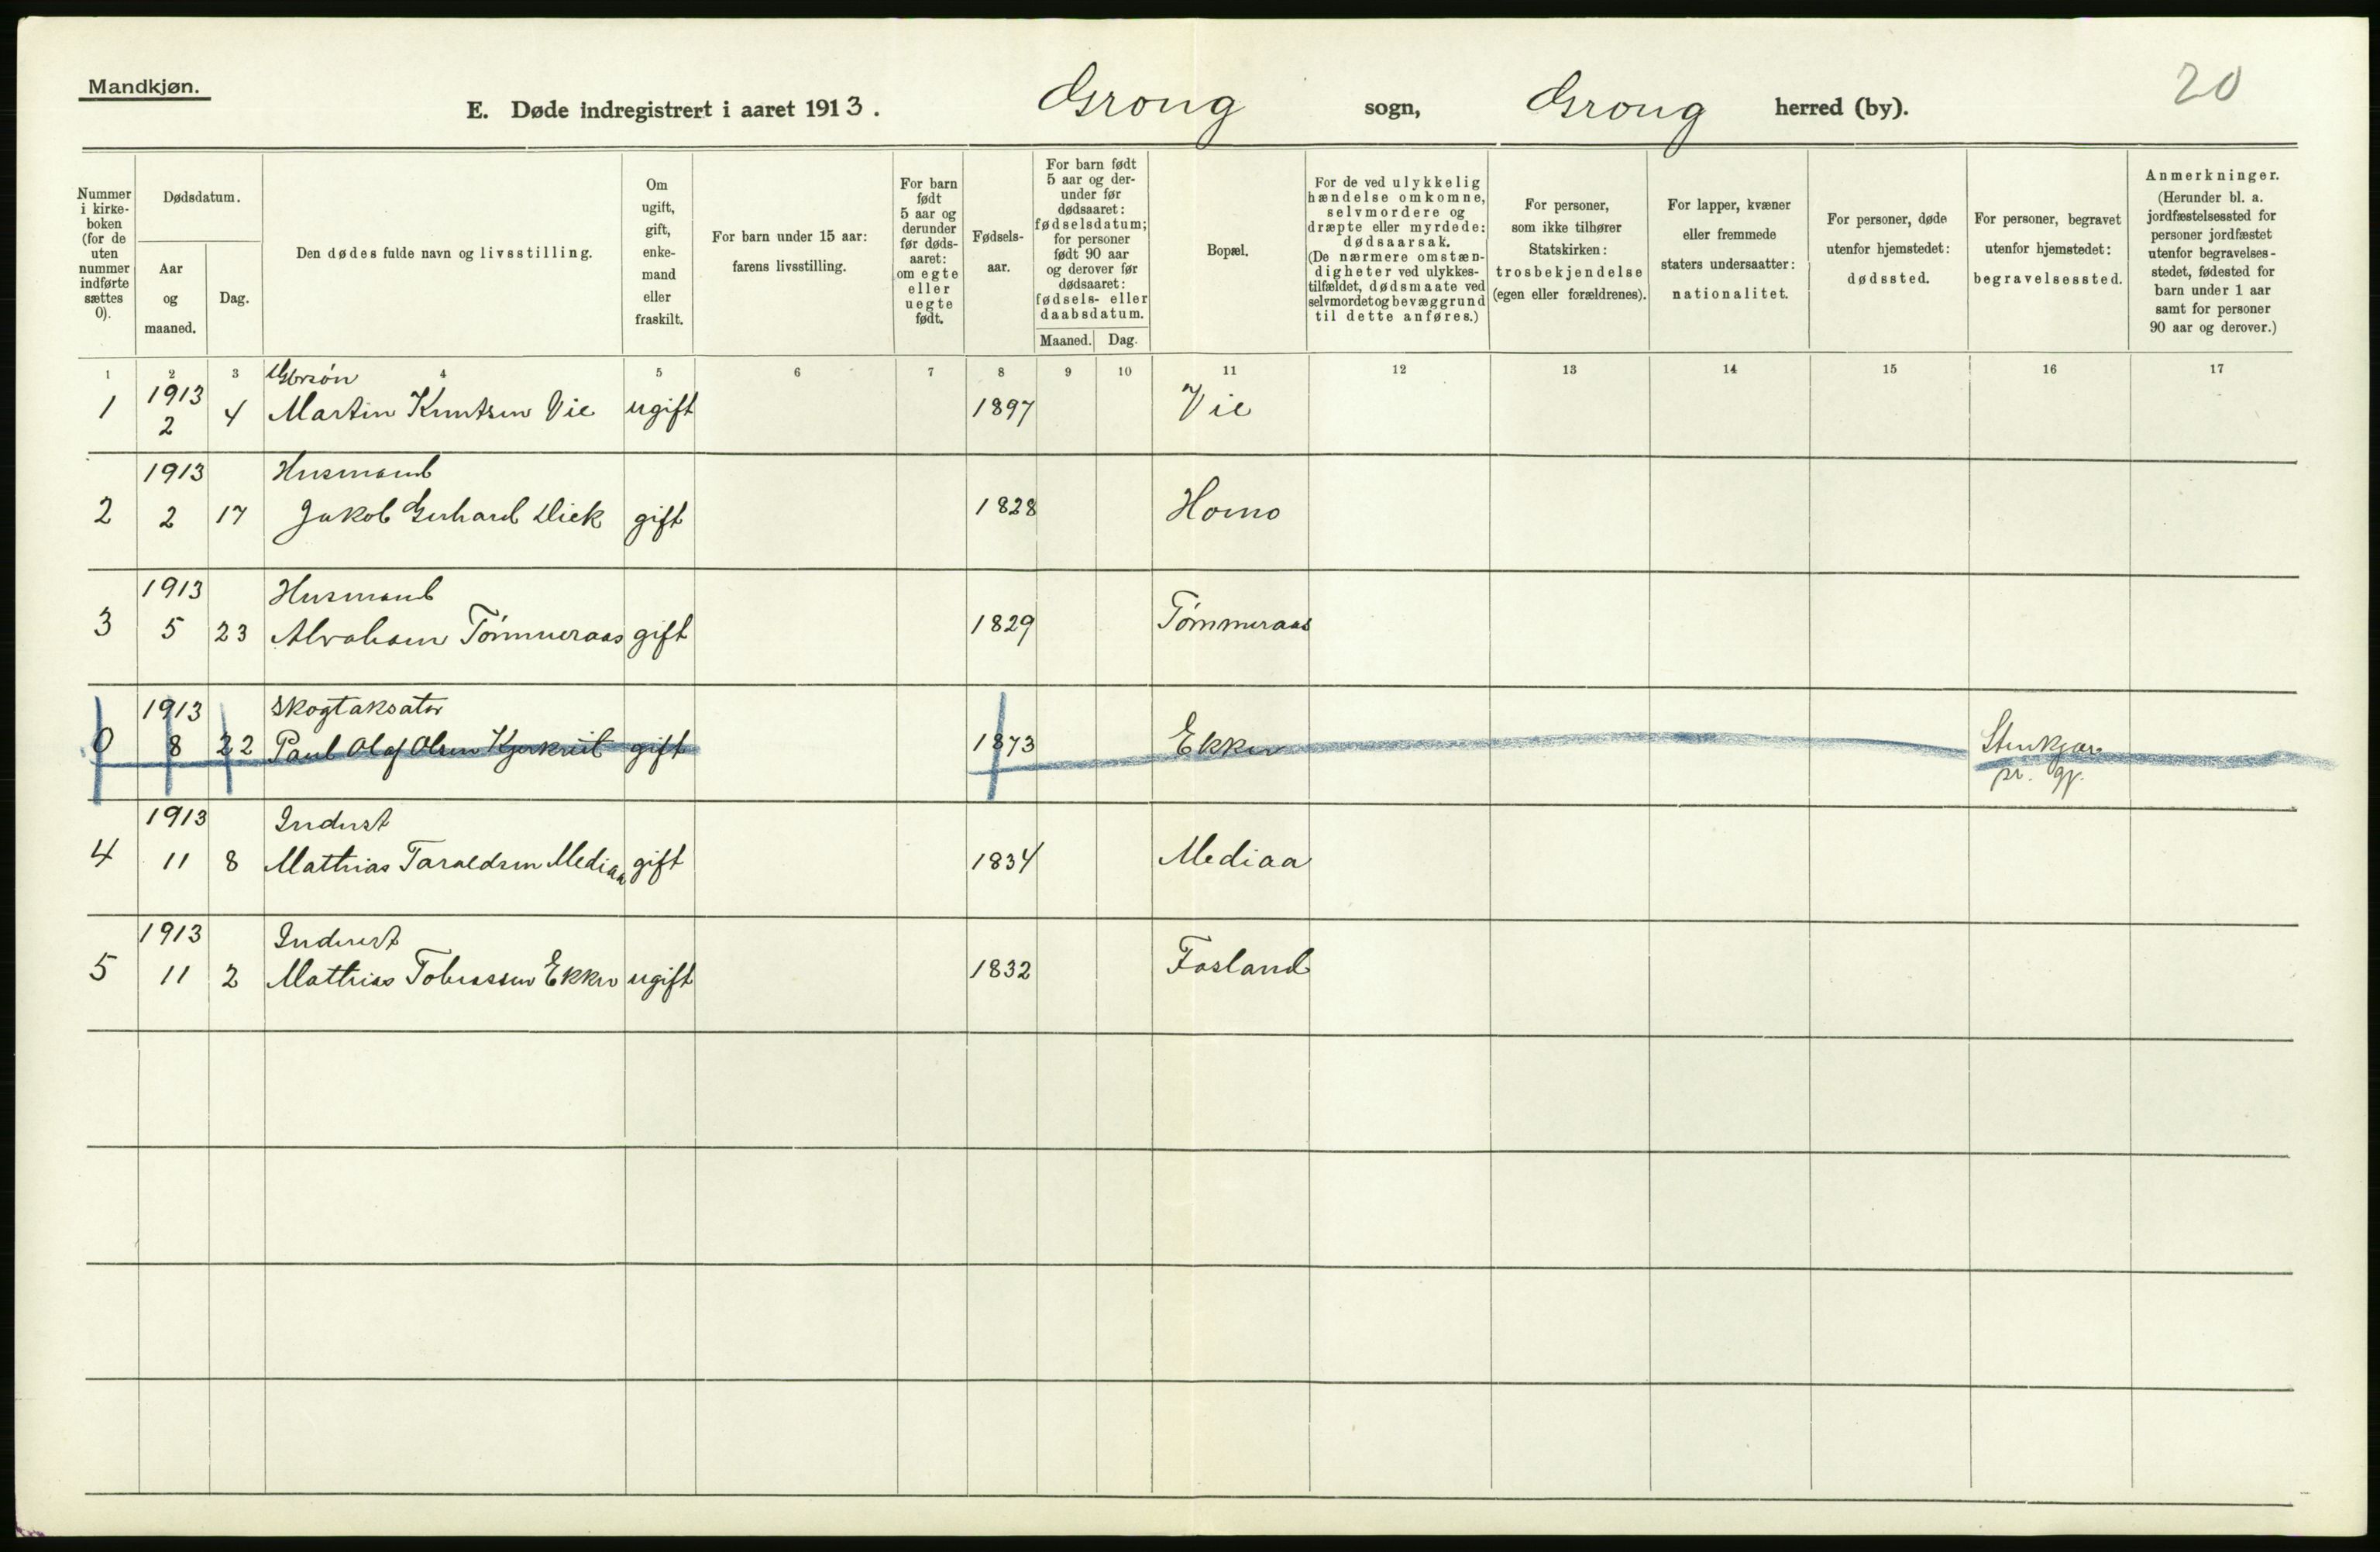 Mandkjøn.
E. Døde indregistrert i aaret 1913. Grong sogn, Grong herred (by).
20
Nummer i kirke-boken (for de uten nummer indførte sættes 0).
Dødsdatum.
Aar og maaned.
Dag.
Den dødes fulde navn og livsstilling.
Om ugift, gift, enke-mand eller fraskilt.
For barn under 15 aar: farens livsstilling.
For barn født 5 aar og derunder før døds-aaret: om egte eller uegte født.
Fødsels-aar.
For barn født 5 aar og der-under før dødsaaret: fødselsdatum; for personer født 90 aar og derover før dødsaaret: fødsels- eller daabsdatum.
Maaned. Dag.
Bopæl.
For de ved ulykkelig hændelse omkomne, selvmordere og dræpte eller myrdede: dødsaarsak. (De nærmere omstæn-digheter ved ulykkes-tilfældet, dødsmaate ved selvmordet og bevæggrund til dette anføres.)
For personer, som ikke tilhører Statskirken: trosbekjendelse (egen eller forældrenes).
For lapper, kvæner eller fremmede staters undersaatter: nationalitet.
For personer, døde utenfor hjemstedet: dødssted.
For personer, begravet utenfor hjemstedet: begravelsessted.
Anmerkninger. (Herunder bl. a. jordfæstelsessted for personer jordfæstet utenfor begravelses-stedet, fødested for barn under 1 aar samt for personer 90 aar og derover.)
1 2 3 4 5 6 7 8 9 10 11 12 13 14 15 16 17
Gbrsøn
1 1913 2 4 Martin Knutsen Vie ugift 1897 Vie
1913 Husmand
2 2 17 Jakob Gerhard Diek gift 1828 Homo
1913 Husmand
3 5 23 Abraham Tømmeraas gift 1829 Tømmeraas
1913 Skogtaksator
0 8 22 Paul Olaf Olsen gift 1873 Ekker Stenkjær
pr. gj.
1913 Inderst
4 11 8 Mathias Taraldsen Mediaa gift 1834 Mediaa
1913 Inderst
5 11 2 Mathias Tobiassen Ekker ugift 1832 Fosland